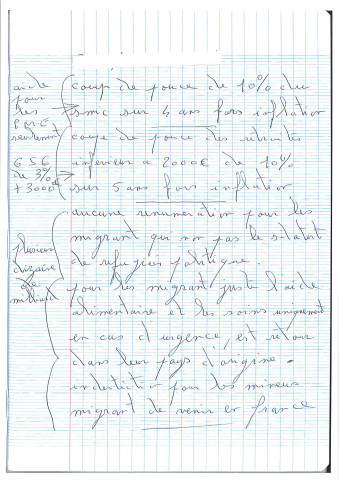 aide
pour
les
PME
seulement
coup de pouce de 10% du
smic sur 4 ans fors inflation
coupe de pouce des retraités
inferieur a 2000€ de 10%
sur 5 ans fors inflation
de 3%
+ 3000€
aucune renumeration pour les
migrant qui non pas le statut
de refugies politique.
plusieur
dizaine
de
milliard
pour les migrant juste l'aide
alimentaire et les soins uniquement
en cas d'urgence, est retour
dans leur pays d'origine.
pour les mineurs
migrant de venir en france